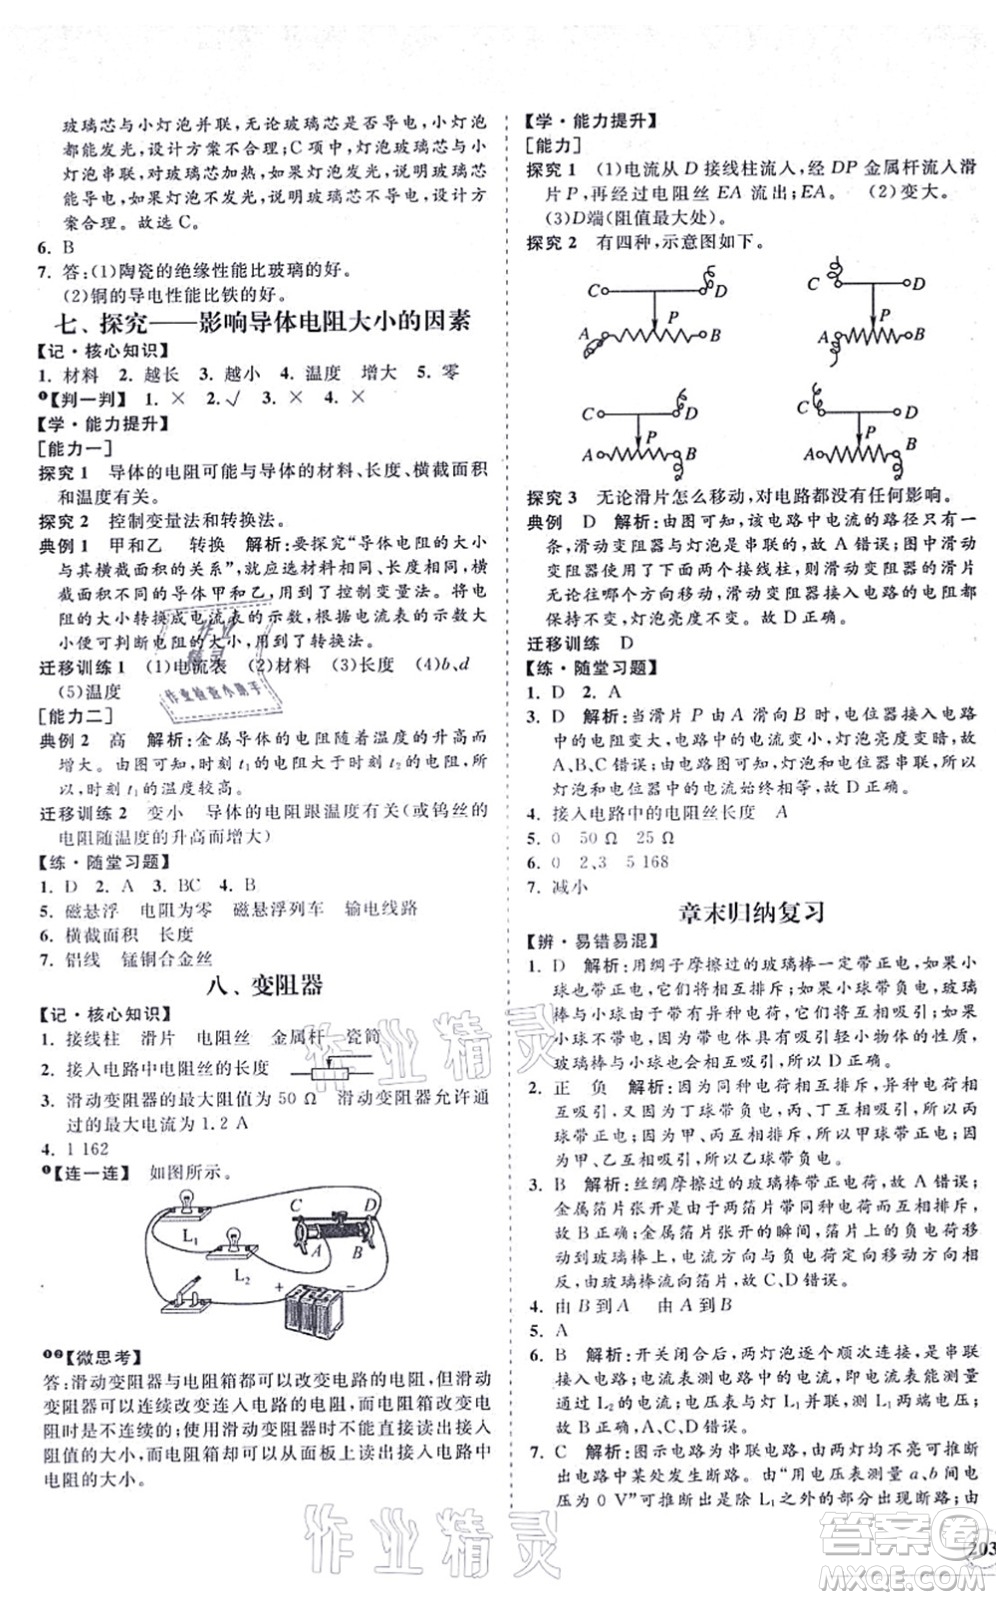 玻璃芯与小灯泡并联,无论玻璃芯是否发光,小灯泡
都能发光,设计方案不合理;C项中,灯泡玻璃芯与小
灯泡串联,对玻璃芯加热,如果灯泡发光,玻璃芯是导
体,如果灯泡不发光,玻璃芯不是导体,所以设计方
案合理。故选C。
6. B
7. 答:(1)陶瓷的绝缘性能比玻璃的好。
(2)铜的导电性能比铁的好。
七、探究——影响导体电阻大小的因素
【记·核心知识】
1. 材料 2. 越长 3. 越小 4. 温度 增大 5. 零
❶【判一判】 1. × 2. √ 3. × 4. ×
【学·能力提升】
[能力一]
探究 1 导体的电阻可能与导体的材料、长度、横截面积
和温度有关。
探究 2 控制变量法和转换法。
典例 1 甲和乙 转换 解析:要探究“导体电阻的大小
与其横截面积的关系”,就应选择材料和长度相同、
横截面积不同的导体甲和乙,用到了控制变量法。将
电阻的大小转换成电流表的示数,根据电流表的示数大
小便可判断电阻的大小,用到了转换法。
迁移训练 1 (1)电流表 (2)材料 (3)长度 (4)b、d
(5)温度
[能力二]
典例 2 高 解析:金属导体的电阻随着温度的升高而
增大。由图可知,时刻 t₁ 的电阻大于时刻 t₂ 的电阻,所
以,时刻 t₁ 的温度较高。
迁移训练 2 变小 导体的电阻跟温度有关(或钨丝的
电阻随温度的升高而增大)
【练·随堂习题】
1. D 2. A 3. BC 4. B
5. 磁悬浮 电阻为零 磁悬浮列车 输电线路
6. 横截面积 长度
7. 铝线 锰铜合金丝
八、变阻器
【记·核心知识】
1. 接线柱 滑片 电阻丝 金属杆 瓷筒
2. 接入电路中电阻丝的长度
3. 滑动变阻器的最大阻值为 50 Ω 滑动变阻器允许通
过的最大电流为 1.2 A
4. 1 162
❶【连一连】 如图所示。
L₁
L₂
C D
A B
+ −
❶❷【微思考】
答:滑动变阻器与电阻箱都可以改变电路的电阻,但滑动
变阻器可以连续改变连入电路的电阻,而电阻箱改变电
阻时是不连续的;使用滑动变阻器时不能直接读出接入
阻值的大小,而电阻箱却可以从面板上读出接入电路中
电阻的大小。
【学·能力提升】
[能力]
探究 1 (1)电流从 D 接线柱流入,经 DP 金属杆流入滑
片 P,再经过电阻丝 EA 流出;EA。 (2)变大。
(3)D端(阻值最大处)。
探究 2 有四种,示意图如下。
C D P A B
C D P A B
C D P A B
C D P A B
探究 3 无论滑片怎么移动,对电路都没有任何影响。
典例 D 解析:由图可知,该电路中电流的路径只有一
条,滑动变阻器与灯泡是串联的,故 A 错误;图中滑动
变阻器接了下面两个接线柱,则滑动变阻器的滑片
无论向哪个方向移动,变阻器接入电路中的电阻都
保持不变,灯泡亮度不变。故 D 正确。
迁移训练 D
【练·随堂习题】
1. D 2. A
3. D 解析:当滑片 P 由 A 滑向 B 时,电位器接入电路
中的电阻变大,电路中的电流变小,灯泡亮度变暗,故
A、B、C 错误;由图可知,灯泡和电位器是串联的,则灯
泡和电位器中的电流始终相等,故 D 正确。
4. 接入电路中的电阻丝长度 A
5. 0 50 Ω 25 Ω
6. 0 2、3 5 168
7. 减小
章末归纳复习
【辨·易错易混】
1. D 解析:用绸子摩擦过的玻璃棒一定带正电,如果小
球也带正电,则会相互排斥;如果小球带负电,则玻
璃棒与小球由于带异种电荷会相互吸引;如果小球不
带电,由于带电体具有吸引轻小物体的性质,所以
玻璃棒与小球也会相互吸引,所以 D 正确。
2. 正 负 解析:根据同种电荷相互排斥,异种电荷相
互吸引,因为丙、丁相互排斥,丁球带负电,所以丙球带负
电;因为甲、丙相互吸引,所以甲球带正电;
因为甲、乙相互吸引,丙、乙相互排斥,所以乙球带负电。
3. B 解析:丝绸摩擦过的玻璃棒带正电,故 A 错误;金
属箔片张开是由于两箔片带同种电荷相互排斥,故
B 正确;金属箔片张开的瞬间,箔片上的负电荷移动
到玻璃棒,电流方向与负电荷定向移动方向相
反,即由玻璃棒流向箔片,故 C、D 错误。
4. 由 B 到 A 由 A 到 B
5. A
6. B 解析:开关闭合后,两灯泡逐个顺次连接,是串联
电路;电流表测电路中的电流,也就是能测量
通过 L₂ 的电流;电压表与 L₁ 并联,测 L₁ 两端电压;故
B 正确,A、C、D 错误。
7. C 解析:图示电路为串联电路,由两灯均不亮可推断出
电路中某处发生断路。由“用电压表测量 a、b 间电
压为 0 V”可推断是除 L₁ 之外的部分出现断路;由
203
作业精灵
作业检查小助手
作业精灵
作业精灵
答案圈
MXQE.COM